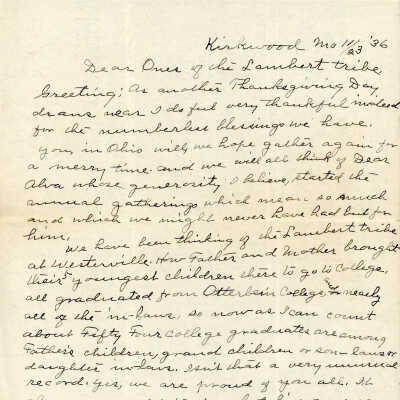 Kirkwood Mo 11/23 '36
Dear Ones of the Lambert tribe,
Greeting; As another Thanksgiving Day,
draws near I do feel very thankful indeed
for the numberless blessings we have.
You, in Ohio will, we hope gather again for
a merry time and we will all think of Dear
Alva whose generosity, I believe, started the
annual gatherings which mean so much
and which we might never have had but for
him,
We have been thinking of the Lambert tribe
at Westerville. How Father and Mother brought
their 5 youngest children there to go to College,
all graduated from Otterbein College, & nearly
all of the in-laws, so now as I can count
about Fifty Four College graduates are among
Father's children, grand children or son-laws or
daughter in-laws. Isn't that a very unusual
record. Yes, we are proud of you all. It